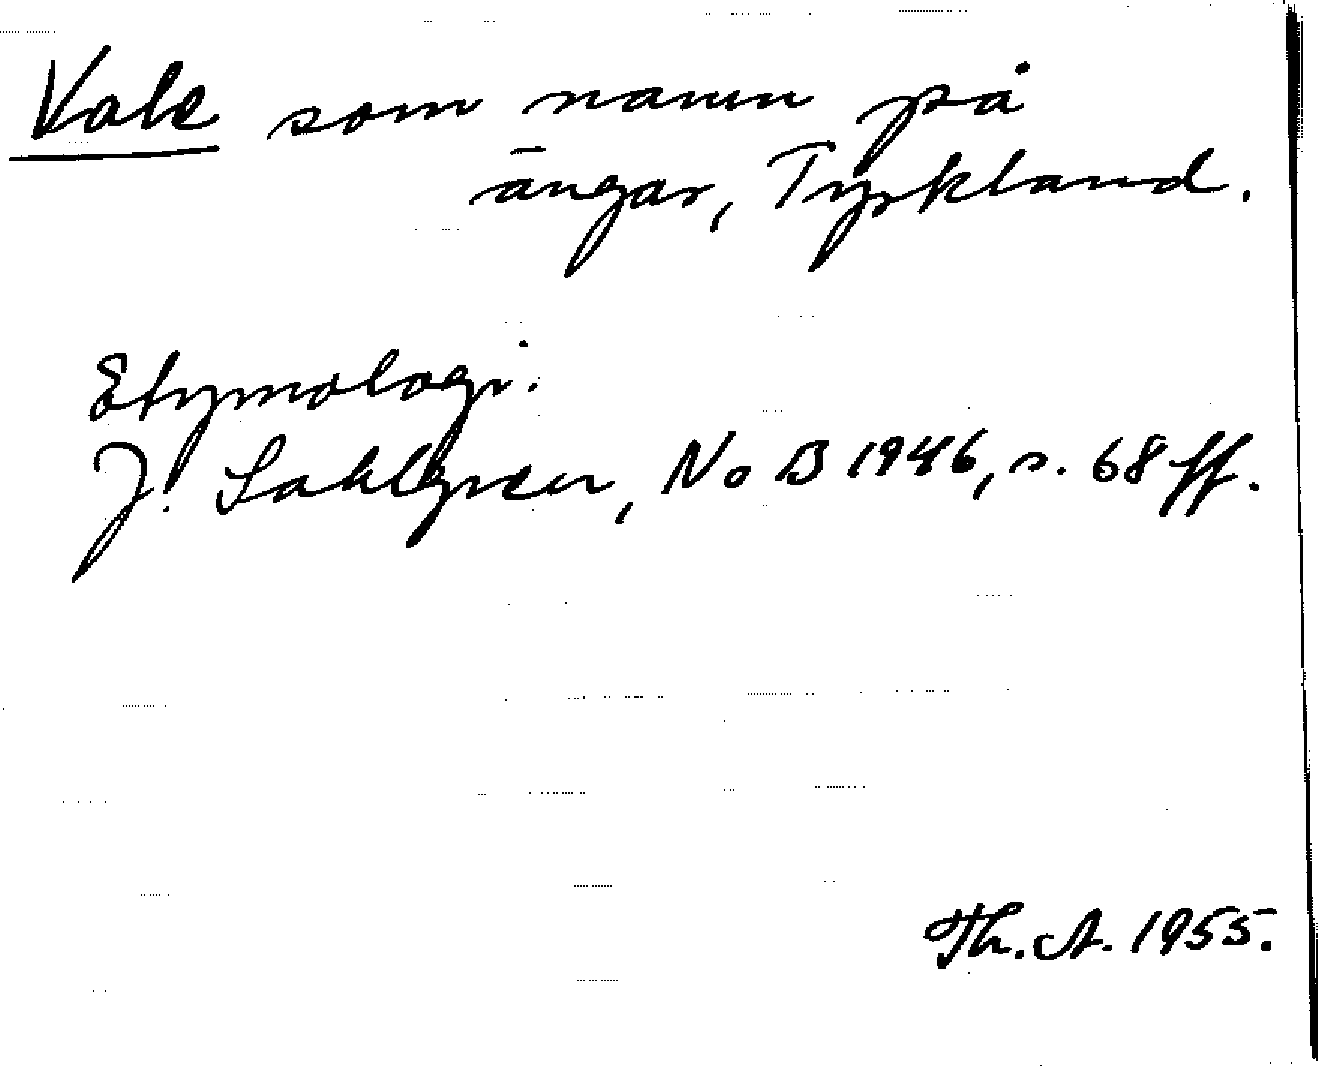 Vale som namn på
ängar, Tyskland.
Etymologi:
J. Sahlgren, NoB 1946, s. 68 ff.
Th. A. 1955.